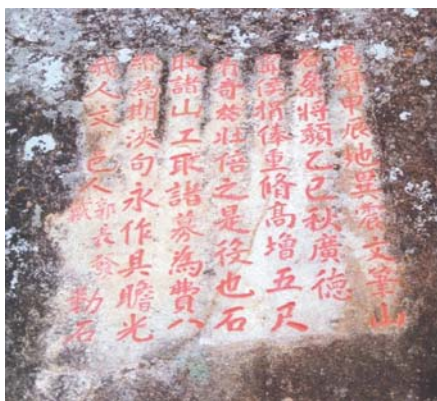 萬曆甲辰地異震文筆山
石条將頹乙巳秋廣德
侯捐俸重脩高增五尺
有奇於壯倍之是後也石
取諸山工取諸募為費八
為期浹旬永作具瞻光
我人文邑人郭長發勒石